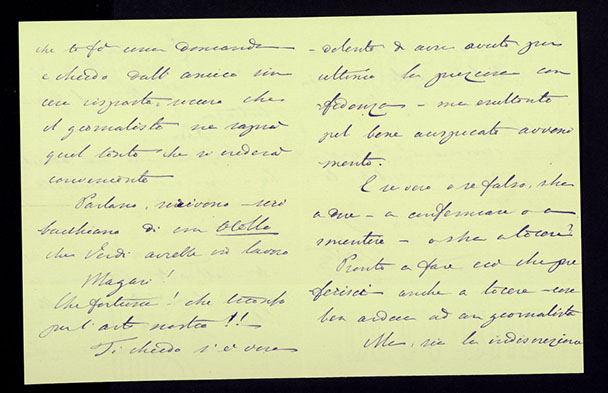 che te fò una domanda
e chiedo dall' amico sin
cera risposta, sicuro che
il giornalista ne saprà
quel tanto che si crederà
conveniente
Parlano, scrivono –
di un Otello
che Verdi avrebbe in lavoro
Magari!
Che fortuna! che trionfo
per l'arte nostra!!
Ti chiedo s'è vero
– dolente di aver avuto per
ultimo la preziosa con
fidenza – ma esultante
pel bene auspicato avveni
mento.
E se vero o se falso, sta
a dire – a confermare o a
smentire – o sta a tacere?
Pronto a fare ciò che pre
ferisci anche a tacere – cosa
ben ardua ad un giornalista
Ma, sia la indiscrezione